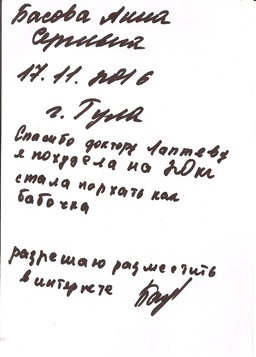 Басова Анна
Сергивна
17.11.2016
г. Тула
Спасибо доктору Лаптеву
я похудела на 30 кг
стала порхать как
бабочка
разрешаю разместить
в интернете